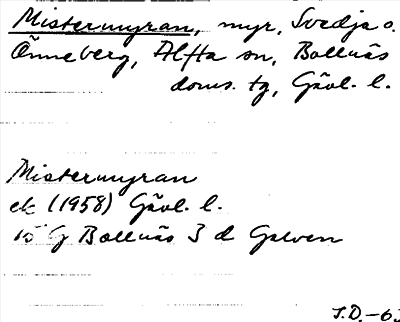 Mistermyran, myr, Svedja o.
Önneberg, Alfta sn, Bollnäs
doms. tg, Gävl. l.
Mistermyran
ek (1958) Gävl. l.
15 G Bollnäs 3 d Galven
J.D.-63